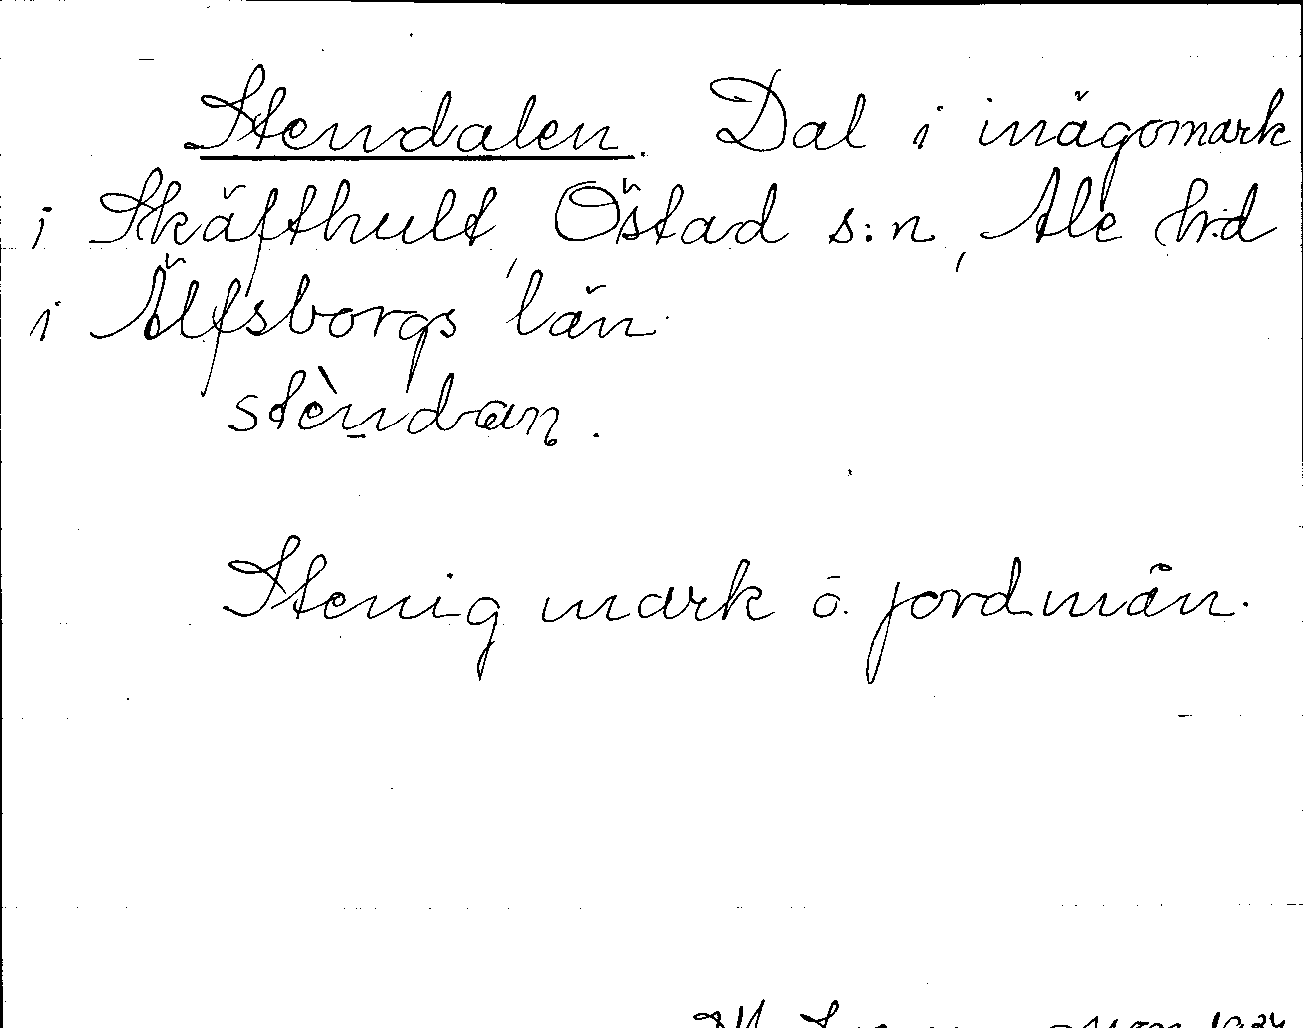 Stendalen. Dal i inägomark
i Skäfthult, Östad s:n, Ale h:d
i Älfsborgs län.
stèndaņ.
Stenig mark o. jordmån.